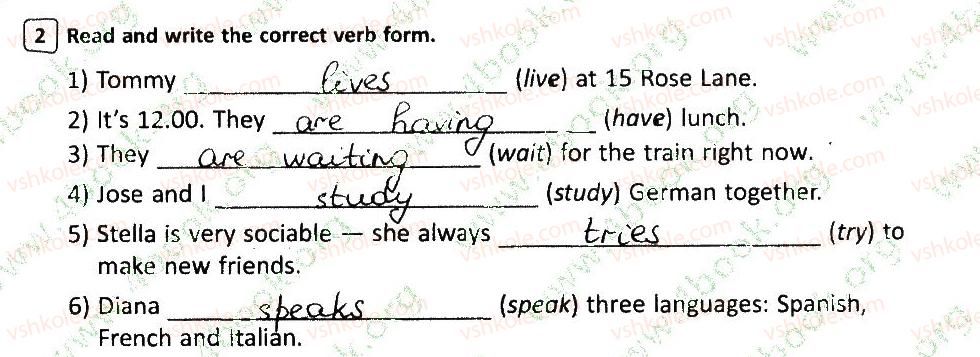 2 Read and write the correct verb form.
1) Tommy lives (live) at 15 Rose Lane.
2) It's 12.00. They are having (have) lunch.
3) They are waiting (wait) for the train right now.
4) Jose and I study (study) German together.
5) Stella is very sociable — she always tries (try) to
make new friends.
6) Diana speaks (speak) three languages: Spanish,
French and Italian.